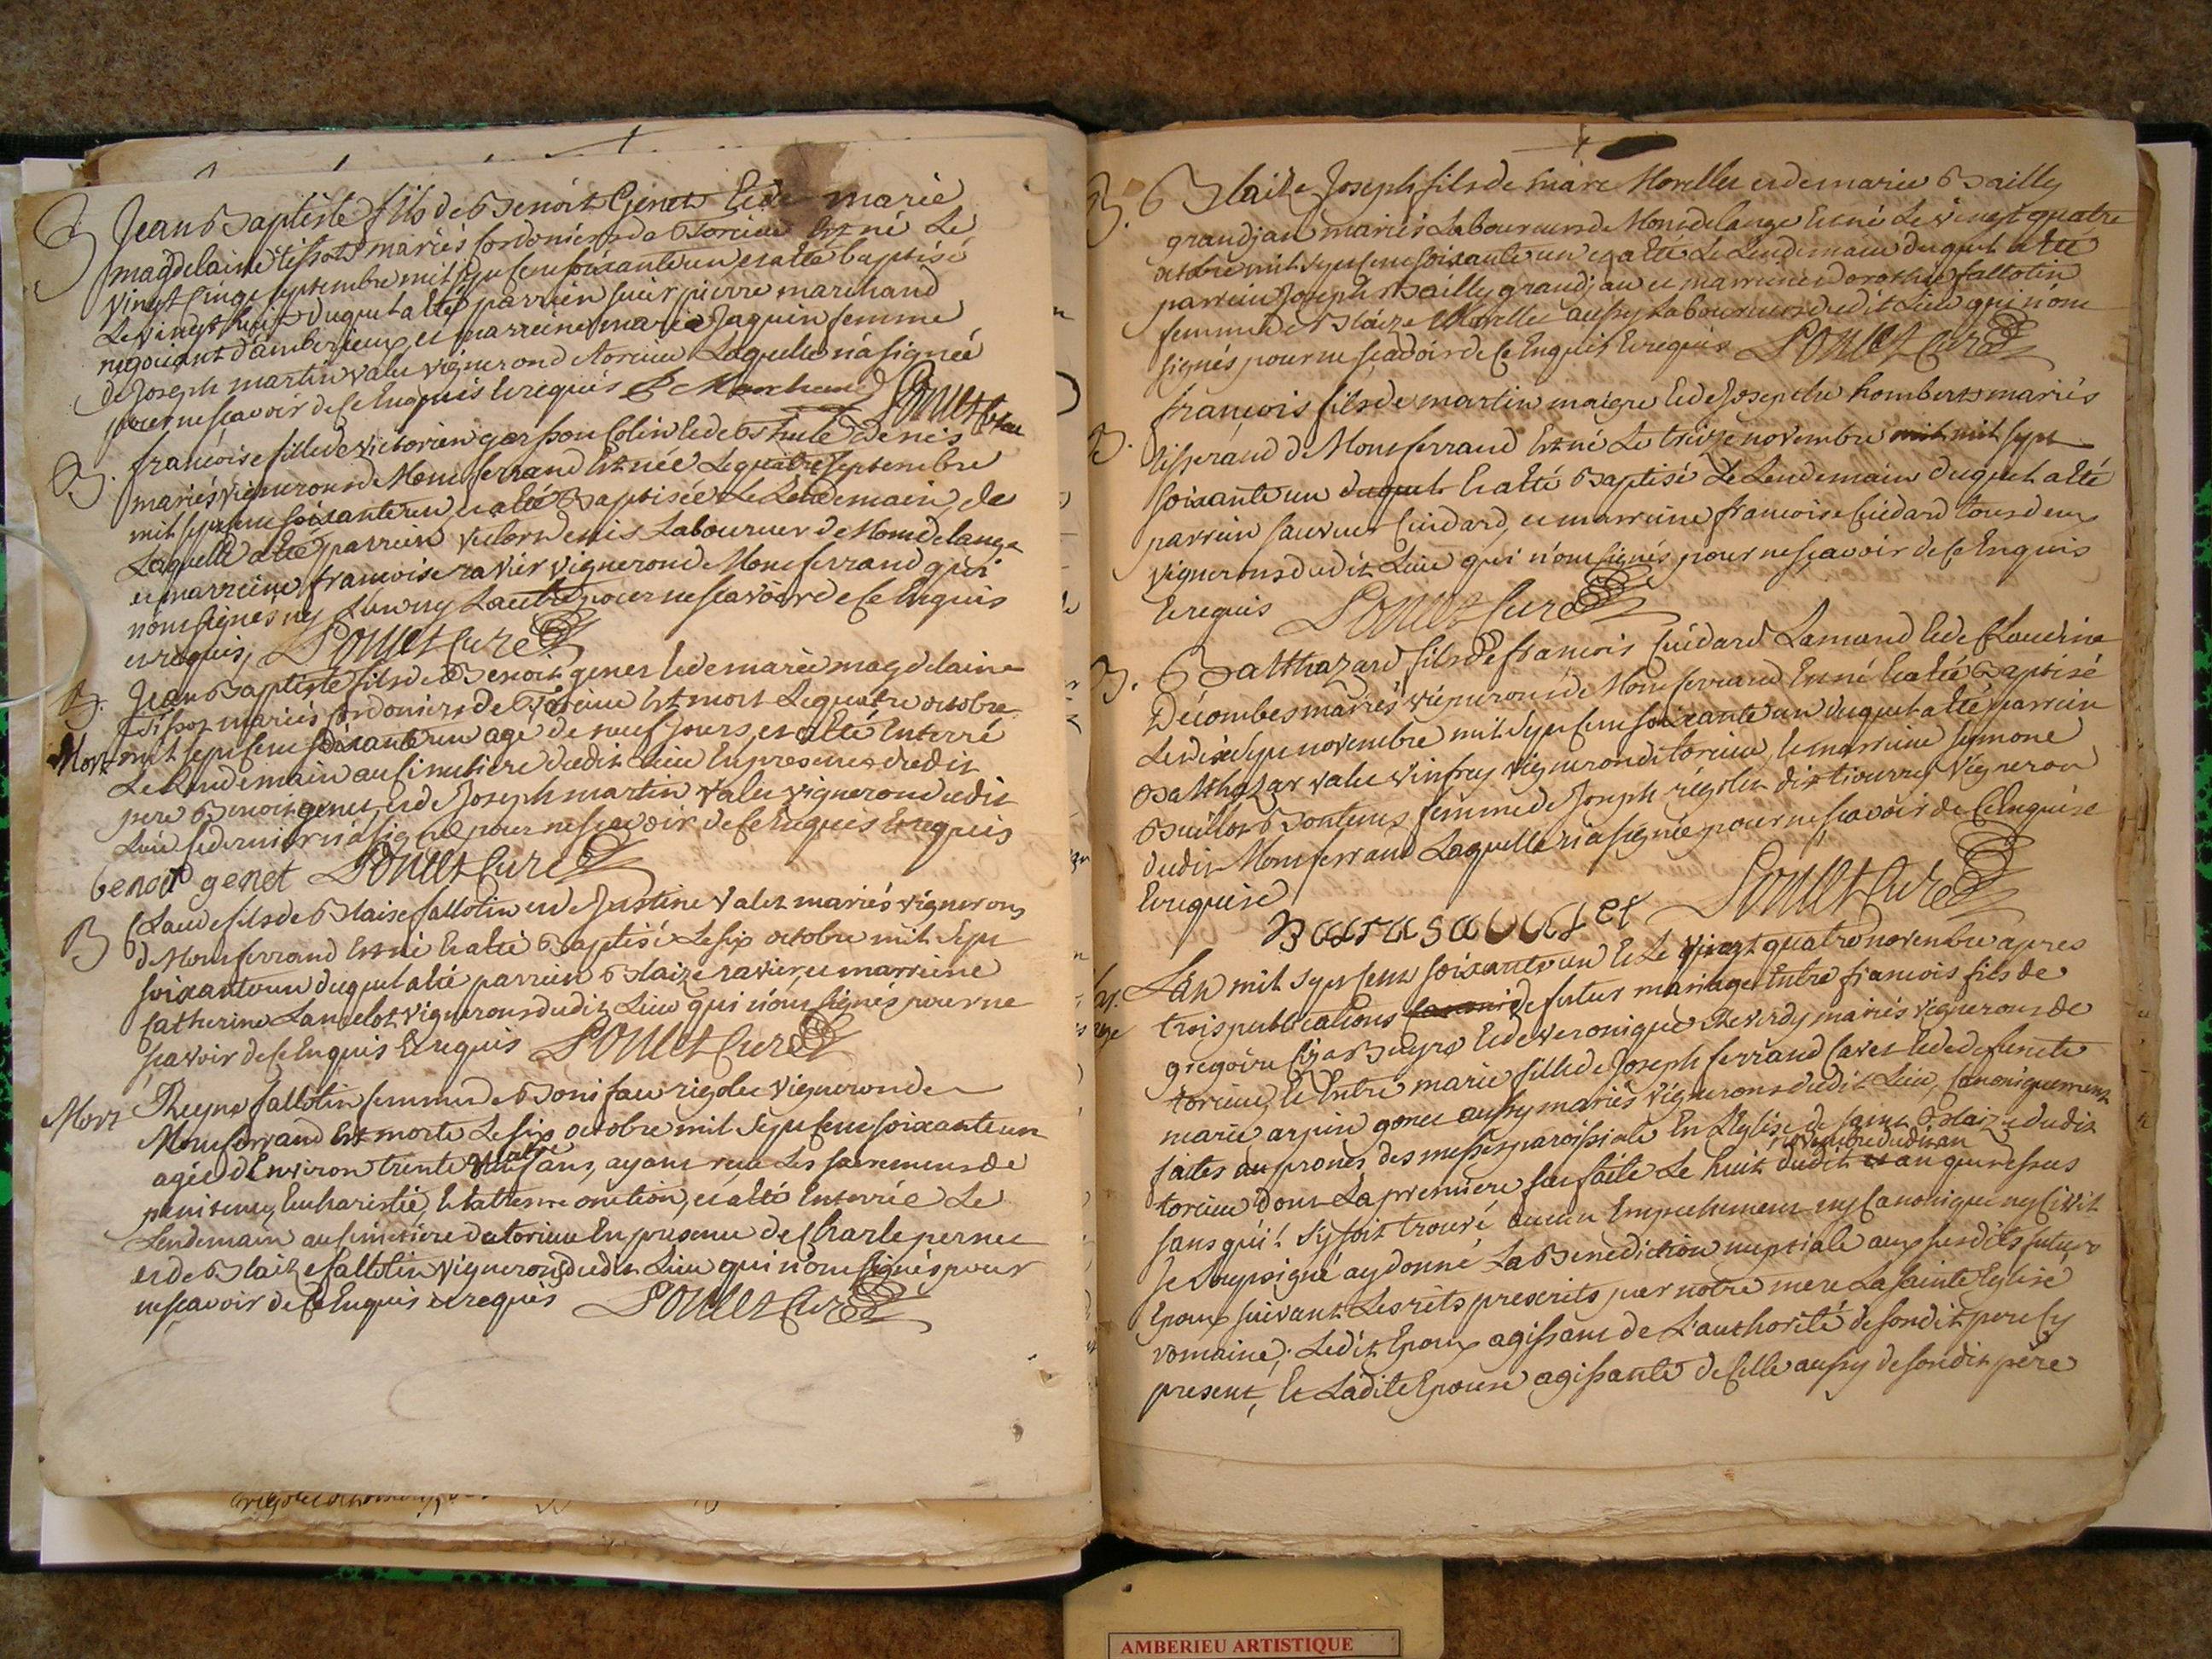 B Jean Baptiste fils de Benoit Genet Et de marie
magdelaine tissot mariés cordoniers de Torcieu Est né Le
vingt cinq septembre mil sept cent soixante un et a été baptisé
Le vingt huit duquel a été parrein sieur pierre marchand
negotiant d'amberieux, et marreine marie Jaquin femme
de Joseph martin valet vigneron de torcieu Laquelle n'a signée
pour ne scavoir de ce Enquis Et requis P Marchand Ponet Curé
B. francoise fille de victorien Colin Et de denis
mariés vignerons de Monferrand Est née Le quatre septembre
mil sept cent soixante un, et a été Baptisée Le Lendemain, de
Laquelle a été parrein victor denis Laboureur de Mondelange
et marreine francoise ravier vigneron de Monferrand qui
n'ont signés ny L'un ny L'autre pour ne scavoir de ce Enquis
et requis, Ponet Curé
B. Jean Baptiste fils de Benoit genet Et de marie magdelaine
Tissot mariés cordoniers de Torcieu Est mort Le quatre octobre
Mort mil sept cent soixante un agé de neuf Jours, et a été Enterré
Le Lendemain au cimetiere dudit Lieu En presence dudit
pere Benoit genet, et de Joseph martin valet vigneron dudit
Lieu ce dernier n'a signé pour ne scavoir de ce Enquis Et requis
benoit genet Ponet Curé
B Claude fils de Blaise fallotin et de Justine valet mariés vignerons
de Monferrand Est né Et a été Baptisé Le six octobre mil sept
soixante un duquel a été parrein Blaize ravier, et marreine
Catherine Lancelot vignerons dudit Lieu qui n'ont signés pour ne
scavoir de ce Enquis Et requis Ponet Curé
Mort Reyne fallotin femme de Boniface rigolet vigneron de
Monferrand Est morte Le six octobre mil sept cent soixante un
agée d'Environ trente ans, ayant reçu Les sacremens de
penitence, Eucharistie, Et d'extreme onction, et a été Enterrée Le
Lendemain au cimetiere de torcieu En presence de Charle pernet
et de Blaize fallotin vignerons dudit Lieu qui n'ont signés pour
ne scavoir de ce Enquis et requis Ponet Curé
B. Blaize Joseph fils de marc Morellet et de marie Bailly
grandjan mariés Laboureurs de Mondelange Est né Le vingt quatre
octobre mil sept cent soixante un et a été Le Lendemain duquel a été
parrein Joseph Bailly grandjan et marreine dorothée fallotin
femme de Blaize Morellet aussy Laboureurs dudit Lieu qui n'ont
signés pour ne scavoir de ce Enquis Et requis Ponet Curé
B. francois fils de martin maigre Et de Josephe hombert mariés
tisserand de Monferrand Est né Le treize novembre mil mil sept
soixante un duquel Et a été Baptisé Le Lendemain duquel a été
parrein sauveur Cuidard, et marreine francoise Cuidard tous deux
vignerons dudit Lieu qui n'ont signés pour ne scavoir de ce Enquis
Et requis Ponet Curé
B. Balthazard fils de francois Cuidard Lamand Et de Claudine
Décombes mariés vignerons de Monferrand Est né Et a été Baptisé
Le dix sept novembre mil sept cent soixante un duquel a été parrein
Balthazar valet vinfrey vigneron de torcieu, Et marreine simone
femme de Joseph rigolet dit vigneron
dudit Monferrand Laquelle n'a signée pour ne scavoir de ce Enquise
Et requise
Ponet Curé
L'an mil sept cent soixante un Et Le vingt quatre novembre apres
trois publications de futur mariage Entre francois fils de
gregoire Et de veronique Reverdy mariés vignerons de
torcieu, Et Entre marie fille de Joseph ferrand Et de defuncte
marie arpin gonet aussy mariés vignerons dudit Lieu, Canoniquement
faites au prones des messes paroissiale En L'Eglise de saint Blaize dudit
novembre dudit an
torcieu dont La premiere fut faite Le huit dudit an que dessus
sans qu'il s'y soit trouvé aucun Empechement ny Canonique ny Civil
Je soussigné ay donné La Benediction nuptiale aux susdits futurs
Epoux suivant Les rits prescrits par notre mere La sainte Eglise
romaine; Ledit Epoux agissant de L'authorité de son dit pere Cy
present, Et Ladite Epouse agissante de celle aussy de son dit père
AMBERIEU ARTISTIQUE